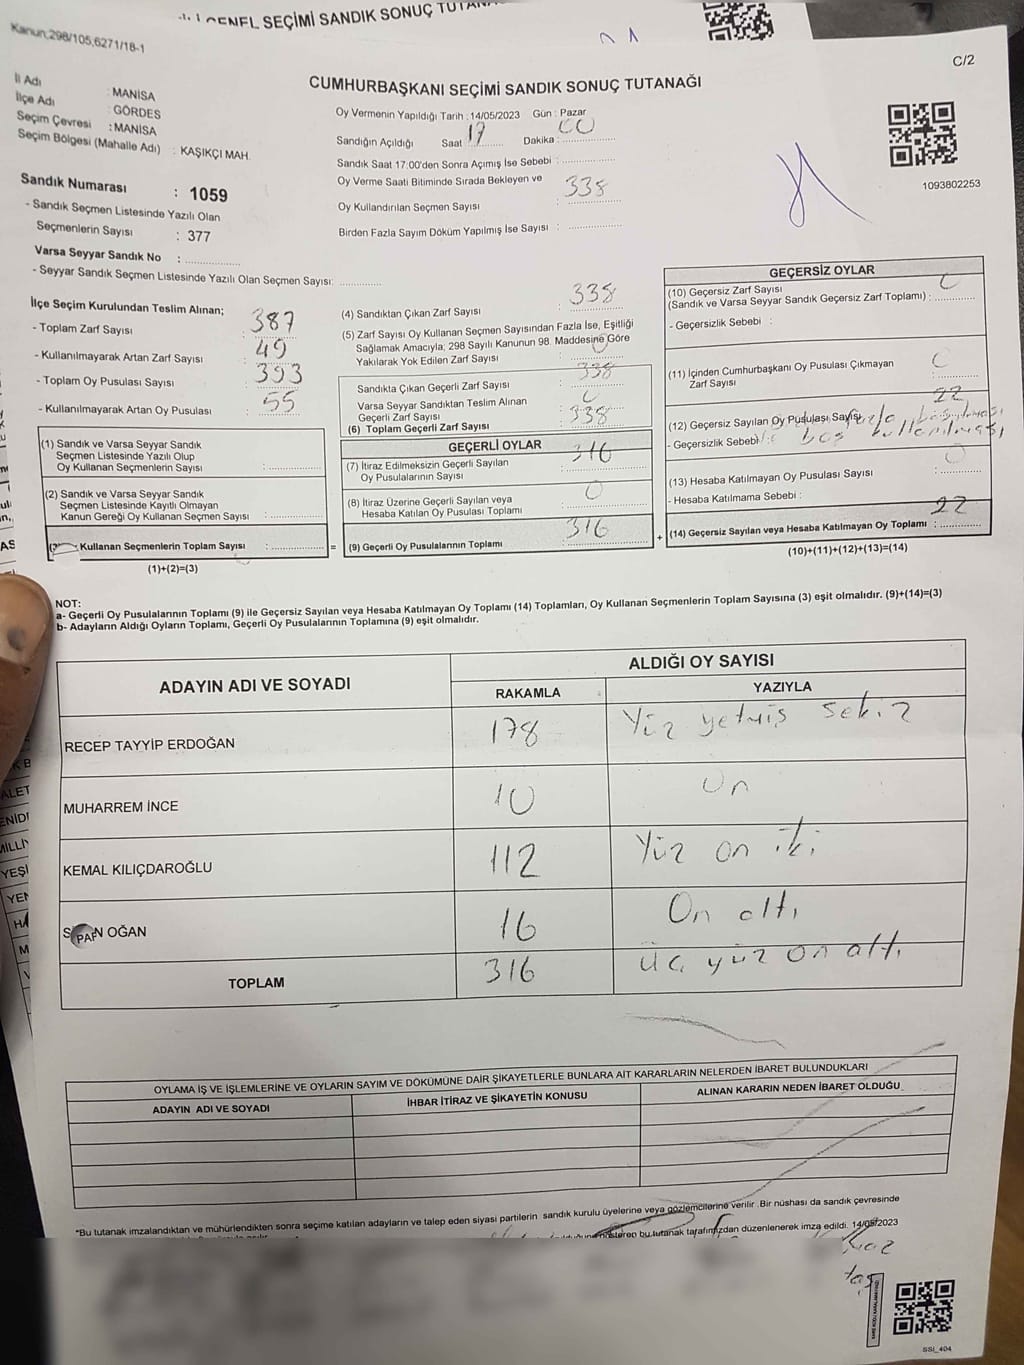 GENEL SEÇİMİ SANDIK SONUÇ
Kanun;298/105,6271/18-1
C/2
CUMHURBAŞKANI SEÇİMİ SANDIK SONUÇ TUTANAĞI
İl Adı : MANİSA
İlçe Adı : GÖRDES
Seçim Çevresi : MANİSA
Seçim Bölgesi (Mahalle Adı) : KAŞIKÇI MAH.
Oy Vermenin Yapıldığı Tarih : 14/05/2023 Gün : Pazar
Sandığın Açıldığı Saat 17 Dakika : 00
Sandık Saat 17:00'den Sonra Açımış İse Sebebi :
Oy Verme Saati Bitiminde Sırada Bekleyen ve
Oy Kullandırılan Seçmen Sayısı : 338
Birden Fazla Sayım Döküm Yapılmış İse Sayısı :
1093802253
Sandık Numarası : 1059
- Sandık Seçmen Listesinde Yazılı Olan
Seçmenlerin Sayısı : 377
Varsa Seyyar Sandık No :
- Seyyar Sandık Seçmen Listesinde Yazılı Olan Seçmen Sayısı:
İlçe Seçim Kurulundan Teslim Alınan;
- Toplam Zarf Sayısı : 387
- Kullanılmayarak Artan Zarf Sayısı : 49
- Toplam Oy Pusulası Sayısı : 393
- Kullanılmayarak Artan Oy Pusulası : 55
(1) Sandık ve Varsa Seyyar Sandık
Seçmen Listesinde Yazılı Olup
Oy Kullanan Seçmenlerin Sayısı :
(2) Sandık ve Varsa Seyyar Sandık
Seçmen Listesinde Kayıtlı Olmayan
Kanun Gereği Oy Kullanan Seçmen Sayısı :
Kullanan Seçmenlerin Toplam Sayısı : =
(1)+(2)=(3)
(4) Sandıktan Çıkan Zarf Sayısı : 338
(5) Zarf Sayısı Oy Kullanan Seçmen Sayısından Fazla İse, Eşitliği
Sağlamak Amacıyla; 298 Sayılı Kanunun 98. Maddesine Göre
Yakılarak Yok Edilen Zarf Sayısı : 0
Sandıkta Çıkan Geçerli Zarf Sayısı : 338
Varsa Seyyar Sandıktan Teslim Alınan
Geçerli Zarf Sayısı : 0
(6) Toplam Geçerli Zarf Sayısı : 338
GEÇERLİ OYLAR
(7) İtiraz Edilmeksizin Geçerli Sayılan
Oy Pusulasının Sayısı : 316
(8) İtiraz Üzerine Geçerli Sayılan veya
Hesaba Katılan Oy Pusulası Toplamı : 0
(9) Geçerli Oy Pusulalarının Toplamı : 316 +
GEÇERSİZ OYLAR
(10) Geçersiz Zarf Sayısı
(Sandık ve Varsa Seyyar Sandık Geçersiz Zarf Toplamı) : 0
- Geçersizlik Sebebi :
(11) İçinden Cumhurbaşkanı Oy Pusulası Çıkmayan
Zarf Sayısı : 0
(12) Geçersiz Sayılan Oy Pusulası Sayısı : 22
- Geçersizlik Sebebi fazla basılması
boş kullanılması
(13) Hesaba Katılmayan Oy Pusulası Sayısı : 0
- Hesaba Katılmama Sebebi :
(14) Geçersiz Sayılan veya Hesaba Katılmayan Oy Toplamı : 22
(10)+(11)+(12)+(13)=(14)
NOT:
a- Geçerli Oy Pusulalarının Toplamı (9) ile Geçersiz Sayılan veya Hesaba Katılmayan Oy Toplamı (14) Toplamları, Oy Kullanan Seçmenlerin Toplam Sayısına (3) eşit olmalıdır. (9)+(14)=(3)
b- Adayların Aldığı Oyların Toplamı, Geçerli Oy Pusulalarının Toplamına (9) eşit olmalıdır.
ADAYIN ADI VE SOYADI
ALDIĞI OY SAYISI
RAKAMLA YAZIYLA
RECEP TAYYİP ERDOĞAN 178 Yüz yetmiş sekiz
MUHARREM İNCE 10 On
KEMAL KILIÇDAROĞLU 112 Yüz on iki
OĞAN 16 On altı
TOPLAM 316 üç yüz on altı
OYLAMA İŞ VE İŞLEMLERİNE VE OYLARIN SAYIM VE DÖKÜMÜNE DAİR ŞİKAYETLERLE BUNLARA AİT KARARLARIN NELERDEN İBARET BULUNDUKLARI
ADAYIN ADI VE SOYADI İHBAR İTİRAZ VE ŞİKAYETİN KONUSU ALINAN KARARIN NEDEN İBARET OLDUĞU
*Bu tutanak imzalandıktan ve mühürlendikten sonra seçime katılan adayların ve talep eden siyasi partilerin sandık kurulu üyelerine veya gözlemcilerine verilir .Bir nüshası da sandık çevresinde
gösteren bu tutanak tarafımızdan düzenlenerek imza edildi. 14/05/2023
SSİ_404